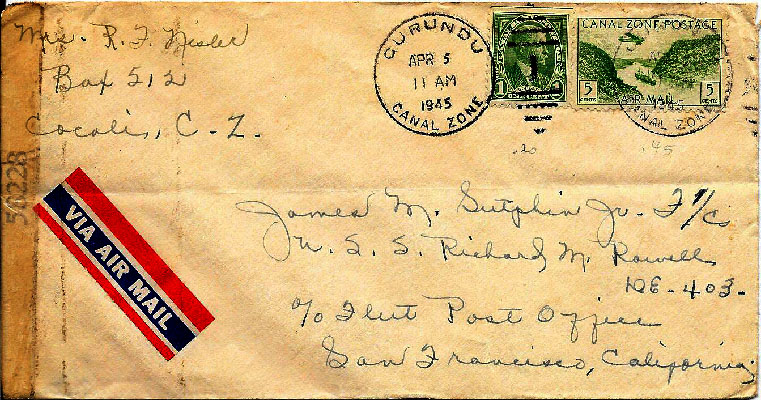 Mrs. R. F. Nisler
Box 512
Cocoli, C. Z.
CURUNDU
APR 5
11 AM
1945
CANAL ZONE
1
CANAL ZONE POSTAGE
5 CENTS
AIR MAIL
5 CENTS
1945
CANAL ZONE
.20
.45
50228
VIA AIR MAIL
James M. Sutphin Jr. F 1/c
U. S. S. Richard M. Rowell
DE-403-
c/o Fleet Post Office
San Francisco, California